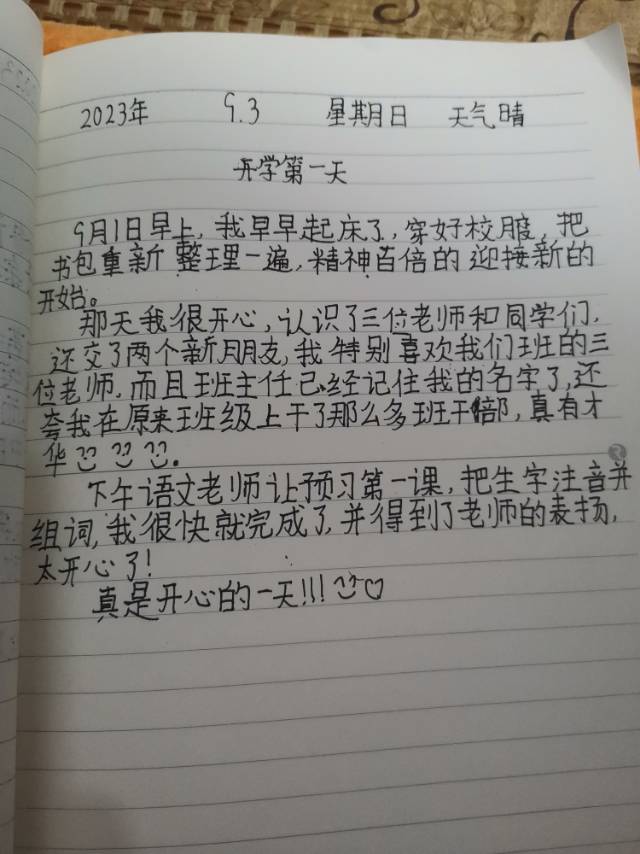 2023年 9.3 星期日 天气晴
开学第一天
9月1日早上,我早早起床了,穿好校服,把
书包重新整理一遍,精神百倍的迎接新的
开始。
那天我很开心,认识了三位老师和同学们,
还交了两个新朋友,我特别喜欢我们班的三
位老师.而且班主任已经记住我的名字了,还
夸我在原来班级上干了那么多班干部,真有才
华。
下午语文老师让预习第一课,把生字注音并
组词,我很快就完成了,并得到了老师的表扬,
太开心了!
真是开心的一天!!!